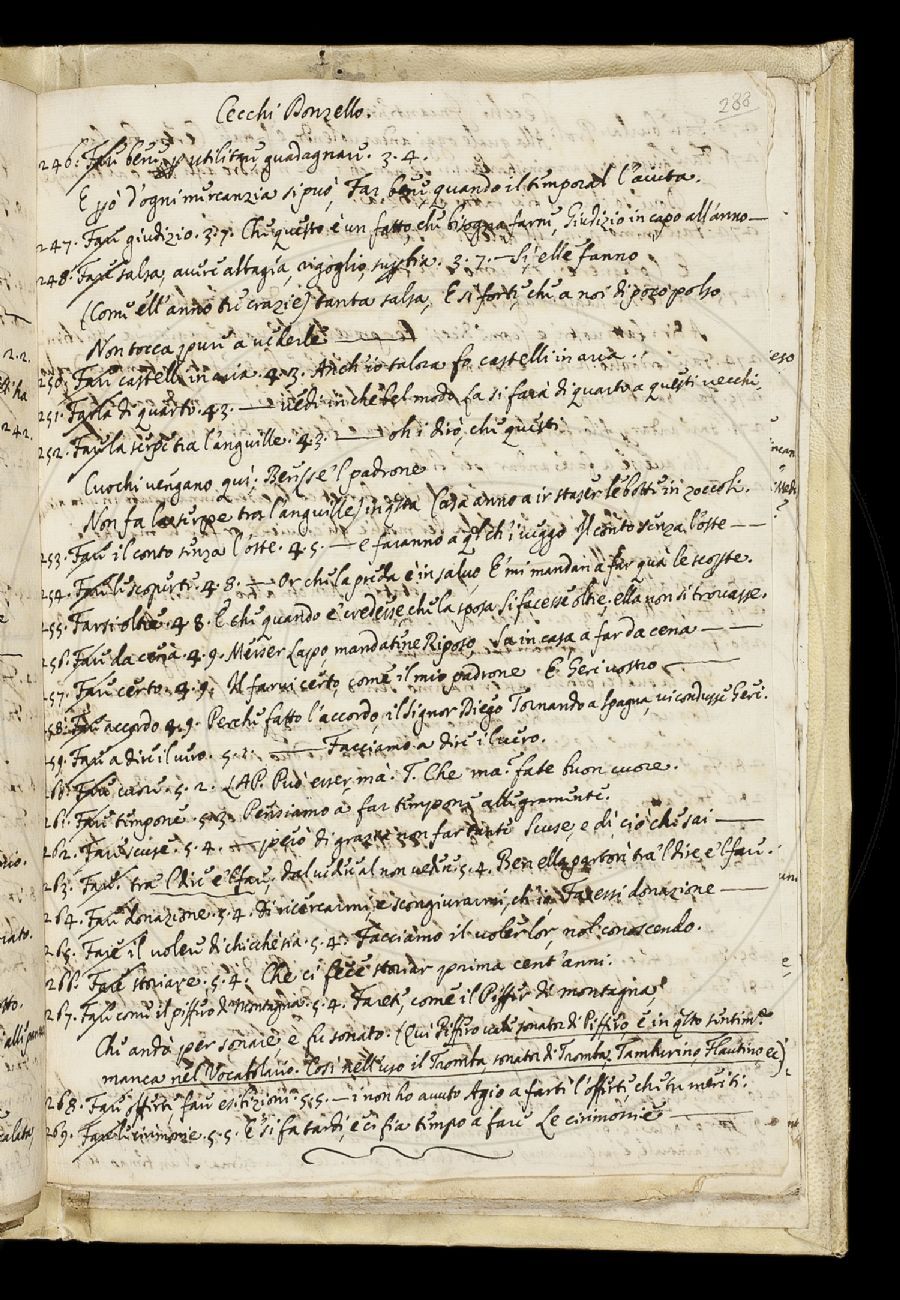 Cecchi Donzello.
288
246. Fare bene, utilitare, guadagnare. 3. 4.
E però d'ogni mercanzia si può, Far bene, quando il temporal l'aiuta.
247. Fare giudizio. 3. 7. Che questo è un fatto, che bisogna farne, Giudizio in capo all'anno —
248. Fare salsa, avere albagia, rigoglio, . 3. 7. — Si, elle fanno
(Come ell'anno tre crazie) tanta salsa, E si forte, che a noi di poco polso
Non tocca pure a vederle —
250. Fare castelli in aria. 4. 3. Anch'io talora fo castelli in aria.
251. Farla di quarto. 4. 3. — vedi in che bel modo La si farà di quarto a questi vecchi
252. Fare la serpe tra l'anguille. 4. 3. — oh i dirò, che questi
Cuochi vengano qui: Beusse 'l padrone
Non fa la serpe tra l'anguille) in qsta Casa anno a ir staser le botti in zoccoli.
253. Fare il conto senza l'oste. 4. 5. — e faranno a ql ch'i veggo Il conto senza l'oste —
254. Fare le scoperte. 4. 8. — Or che la preda è in salvo, E' mi mandan a far quà le scoperte.
255. Farsi oltre. 4. 8. E che quando e' credesse che la sposa Si facesse oltre, ella non si trovasse.
256. Fare da cena. 4. 9. Messer Lapo, mandatene Riposo, La in casa a far da cena —
257. Fare certo. 4. 9. Il farvi certo, come il mio padrone E Geri vostro —
258. Fare accordo 4. 9. Perche fatto l'accordo, il Signor Diego Tornando a Spagna, vi condusse Geri.
259. Fare a dire il vero. 5. 2. — Facciamo a dire il vero.
260. Fare cuore. 5. 2. LAP. Può esser, ma. T. Che ma? fate buon cuore.
261. Fare tempone. 5. 3. Pensiamo a far tempone allegramente.
262. Fare scuse. 5. 4. — però di grazia non far tante Scuse, e di' ciò che sai —
263. Fare. tra 'l dire e 'l fare, dal vedere al non vedere. 5. 4. Ben ella partorì tra 'l dire e 'l fare.
264. Fare donazione. 5. 4. Di ricercarmi, e scongiurarmi, ch'io Facessi donazione —
265. Fare il volere di chicchesia. 5. 4. Facciamo il voler lor, nol conoscendo.
266. Fare storiare. 5. 4. Che ci fece storiar prima cent'anni.
267. Fare come il piffero di montagna. 5. 4. Farete, come il Piffer di montagna,
Che andò per sonare e fu sonato. (Qui Piffero vale sonator di Piffero e in qsto sentime
manca nel Vocabolario. Così nell'uso il Tromba sonator di Tromba, Tamburino Flautino ec)
268. Fare offerte, fare esibizioni. 5. 5. — i non ho avuto Agio a farti l'offerte che tu meriti.
269. Fare le cirimonie. 5. 5. E' si fa tardi, e ci fia tempo a fare Le cirimonie —